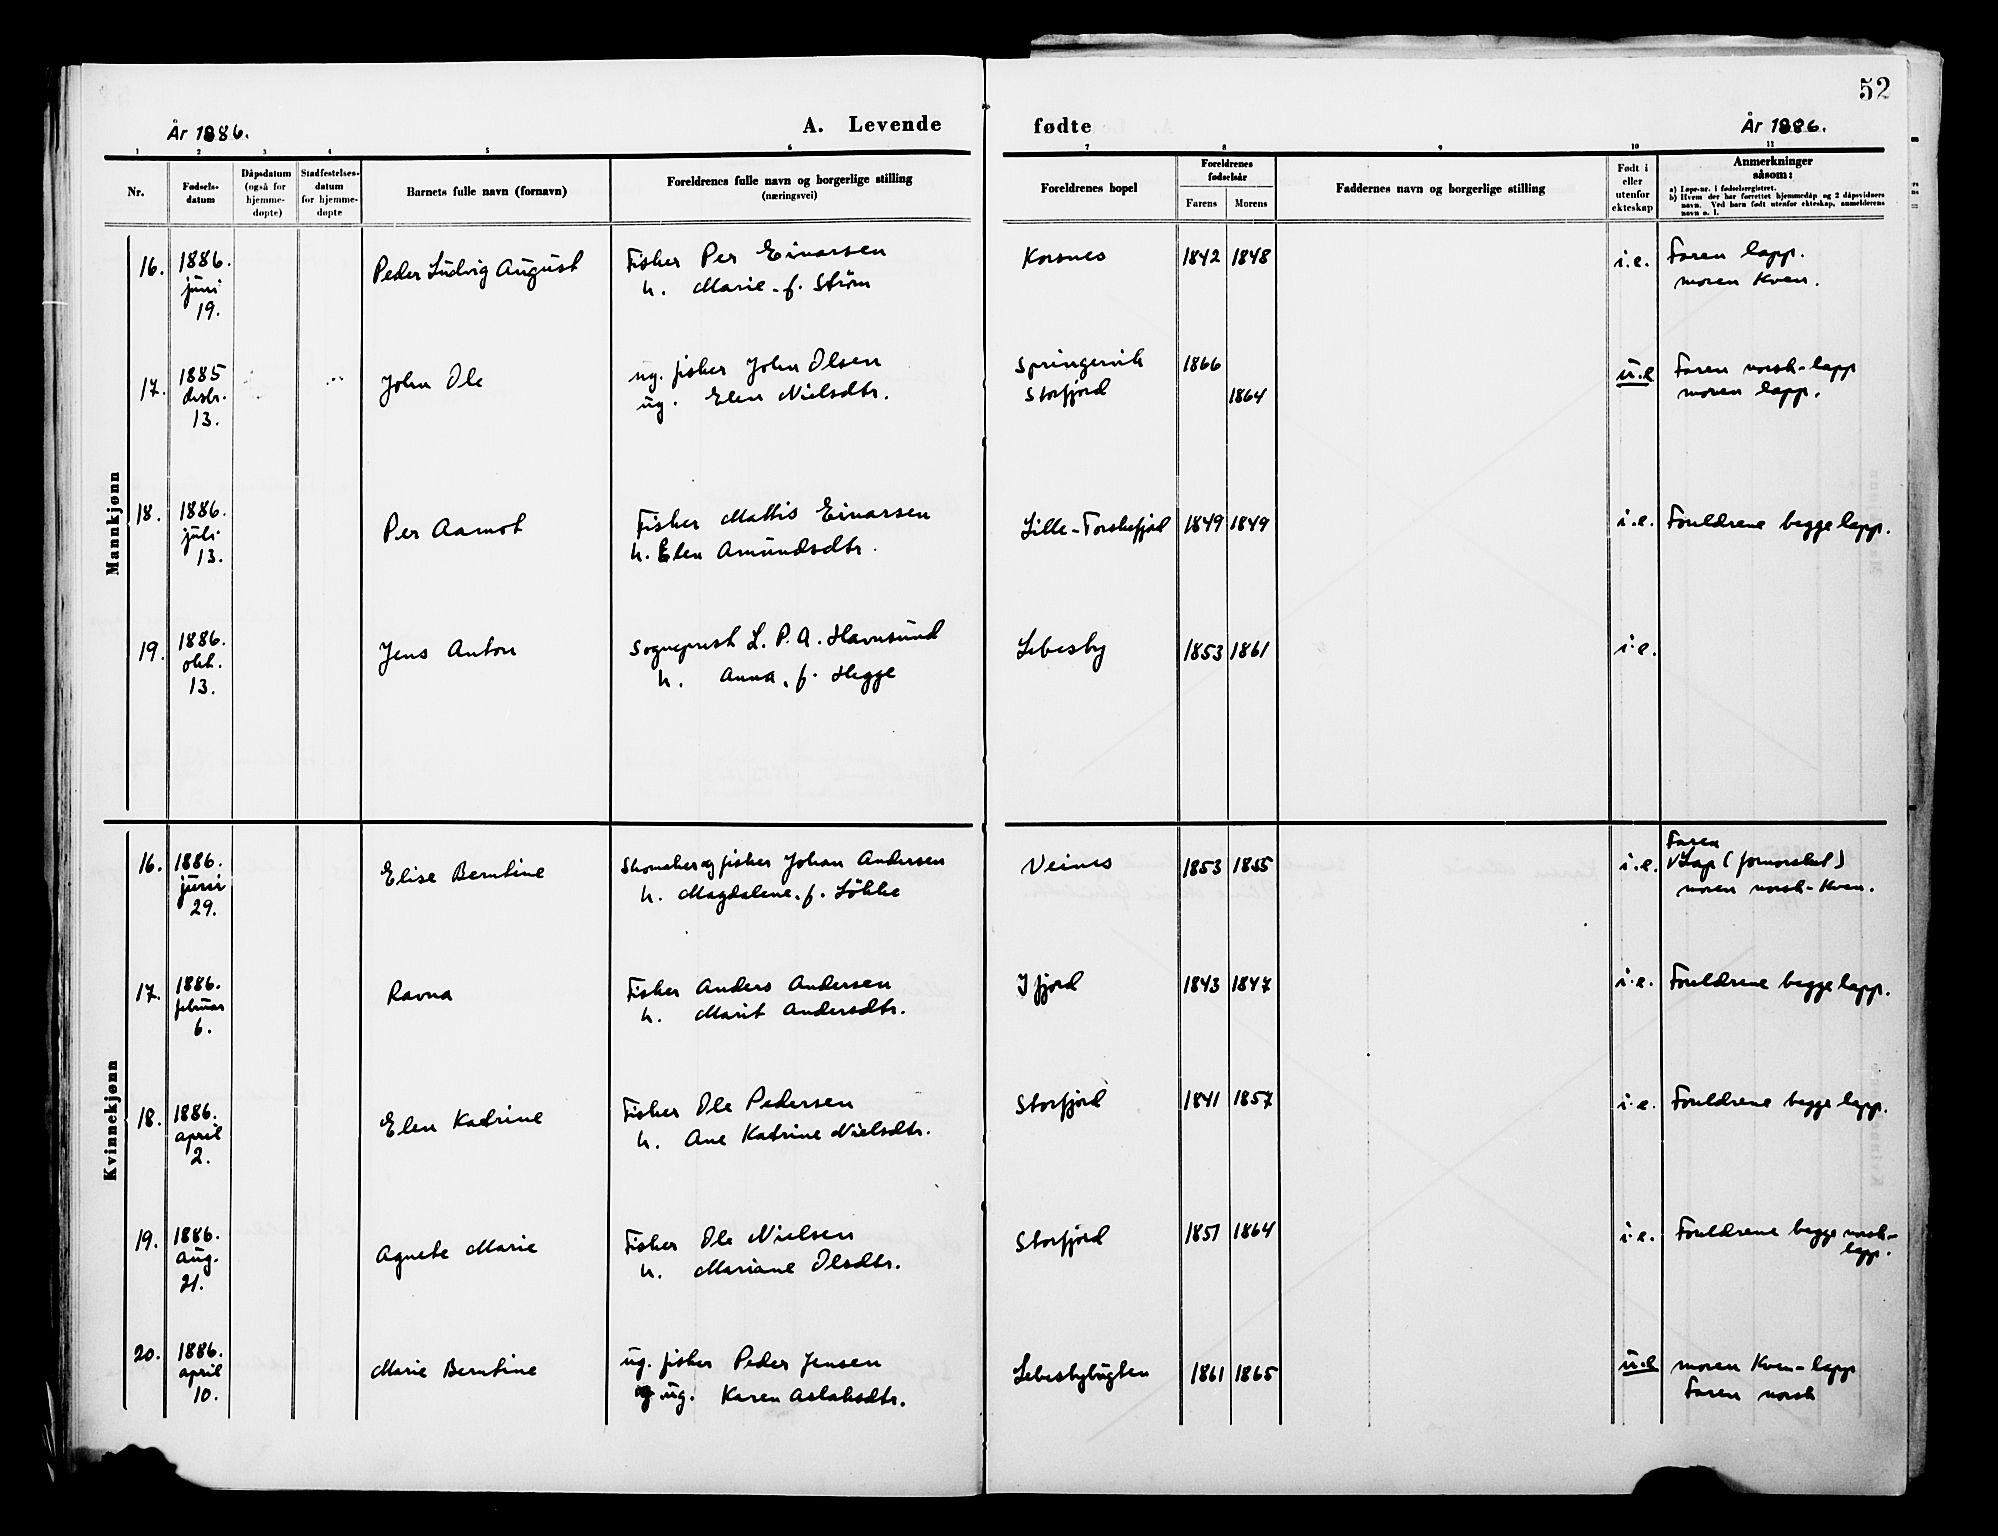 52
År 1886.
A. Levende fødte
År 1886.
1 2 3 4 5 6 7 8 9 10 11
Nr.
Fødsels-
datum
Dåpsdatum
(også for
hjemme-
døpte)
Stadfestelses-
datum
for hjemme-
døpte
Barnets fulle navn (fornavn)
Foreldrenes fulle navn og borgerlige stilling
(næringsvei)
Foreldrenes bopel
Foreldrenes
fødselsår
Farens Morens
Faddernes navn og borgerlige stilling
Født i
eller
utenfor
ekteskap
Anmerkninger
såsom:
a) Løpe-nr. i fødselsregistret.
b) Hvem der har forrettet hjemmedåp og 2 dåpsvidners
navn. Ved barn født utenfor ekteskap, anmelderens
navn o. l.
Mannkjønn
16. 1886. Peder Ludvig August Fisker Per Einarsen Korsnes 1842 1848 i.e. Faren lapp.
juni h. Marie f. Strøm moren Kven.
19.
17. 1885 John Ole ug. fisker John Olsen Springervik 1866 u.e Faren norsk-lapp
desbr. ug. Elen Nielsdtr. Storfjord 1864 moren lapp.
13.
18. 1886. Per Aamot Fisker Mattis Einarsen Lille-Torskefjord 1849 1849 i.e. Foreldrene begge lapp.
juli h. Elen Amundsdtr.
13.
19. 1886. Jens Anton Sogneprest L. P. A. Havnsund Lebesby 1853 1861 i.e.
okt. h. Anna, f. Hegge
13.
Kvinnekjønn
16. 1886. Elise Berntine Skomaker og fisker Johan Andersen Veines 1853 1855 i.e. Faren
Lap (fornorsket)
juni h. Magdalene f. Løkke moren norsk-Kven.
29.
17. 1886. Ravna Fisker Anders Andersen Ifjord 1843 1847 i.e. Foreldrene begge lapp.
februar h. Marit Andersdtr.
6.
18. 1886. Elen Katrine Fisker Ole Pedersen Storfjord 1841 1857 i.e. Foreldrene begge lapp.
april h. Ane Katrine Nielsdtr.
2.
19. 1886. Agnete Marie Fisker Ole Nielsen Storfjord 1851 1864 i.e. Foreldrene begge norsk-
lapp.
aug. h. Mariane Olsdtr.
21.
20. 1886. Marie Berntine ug. fisker Peder Jensen Lebesbybugten 1861 1865 u.e moren Kven-lapp
april og ug. Karen Aslaksdtr. Faren norsk
10.